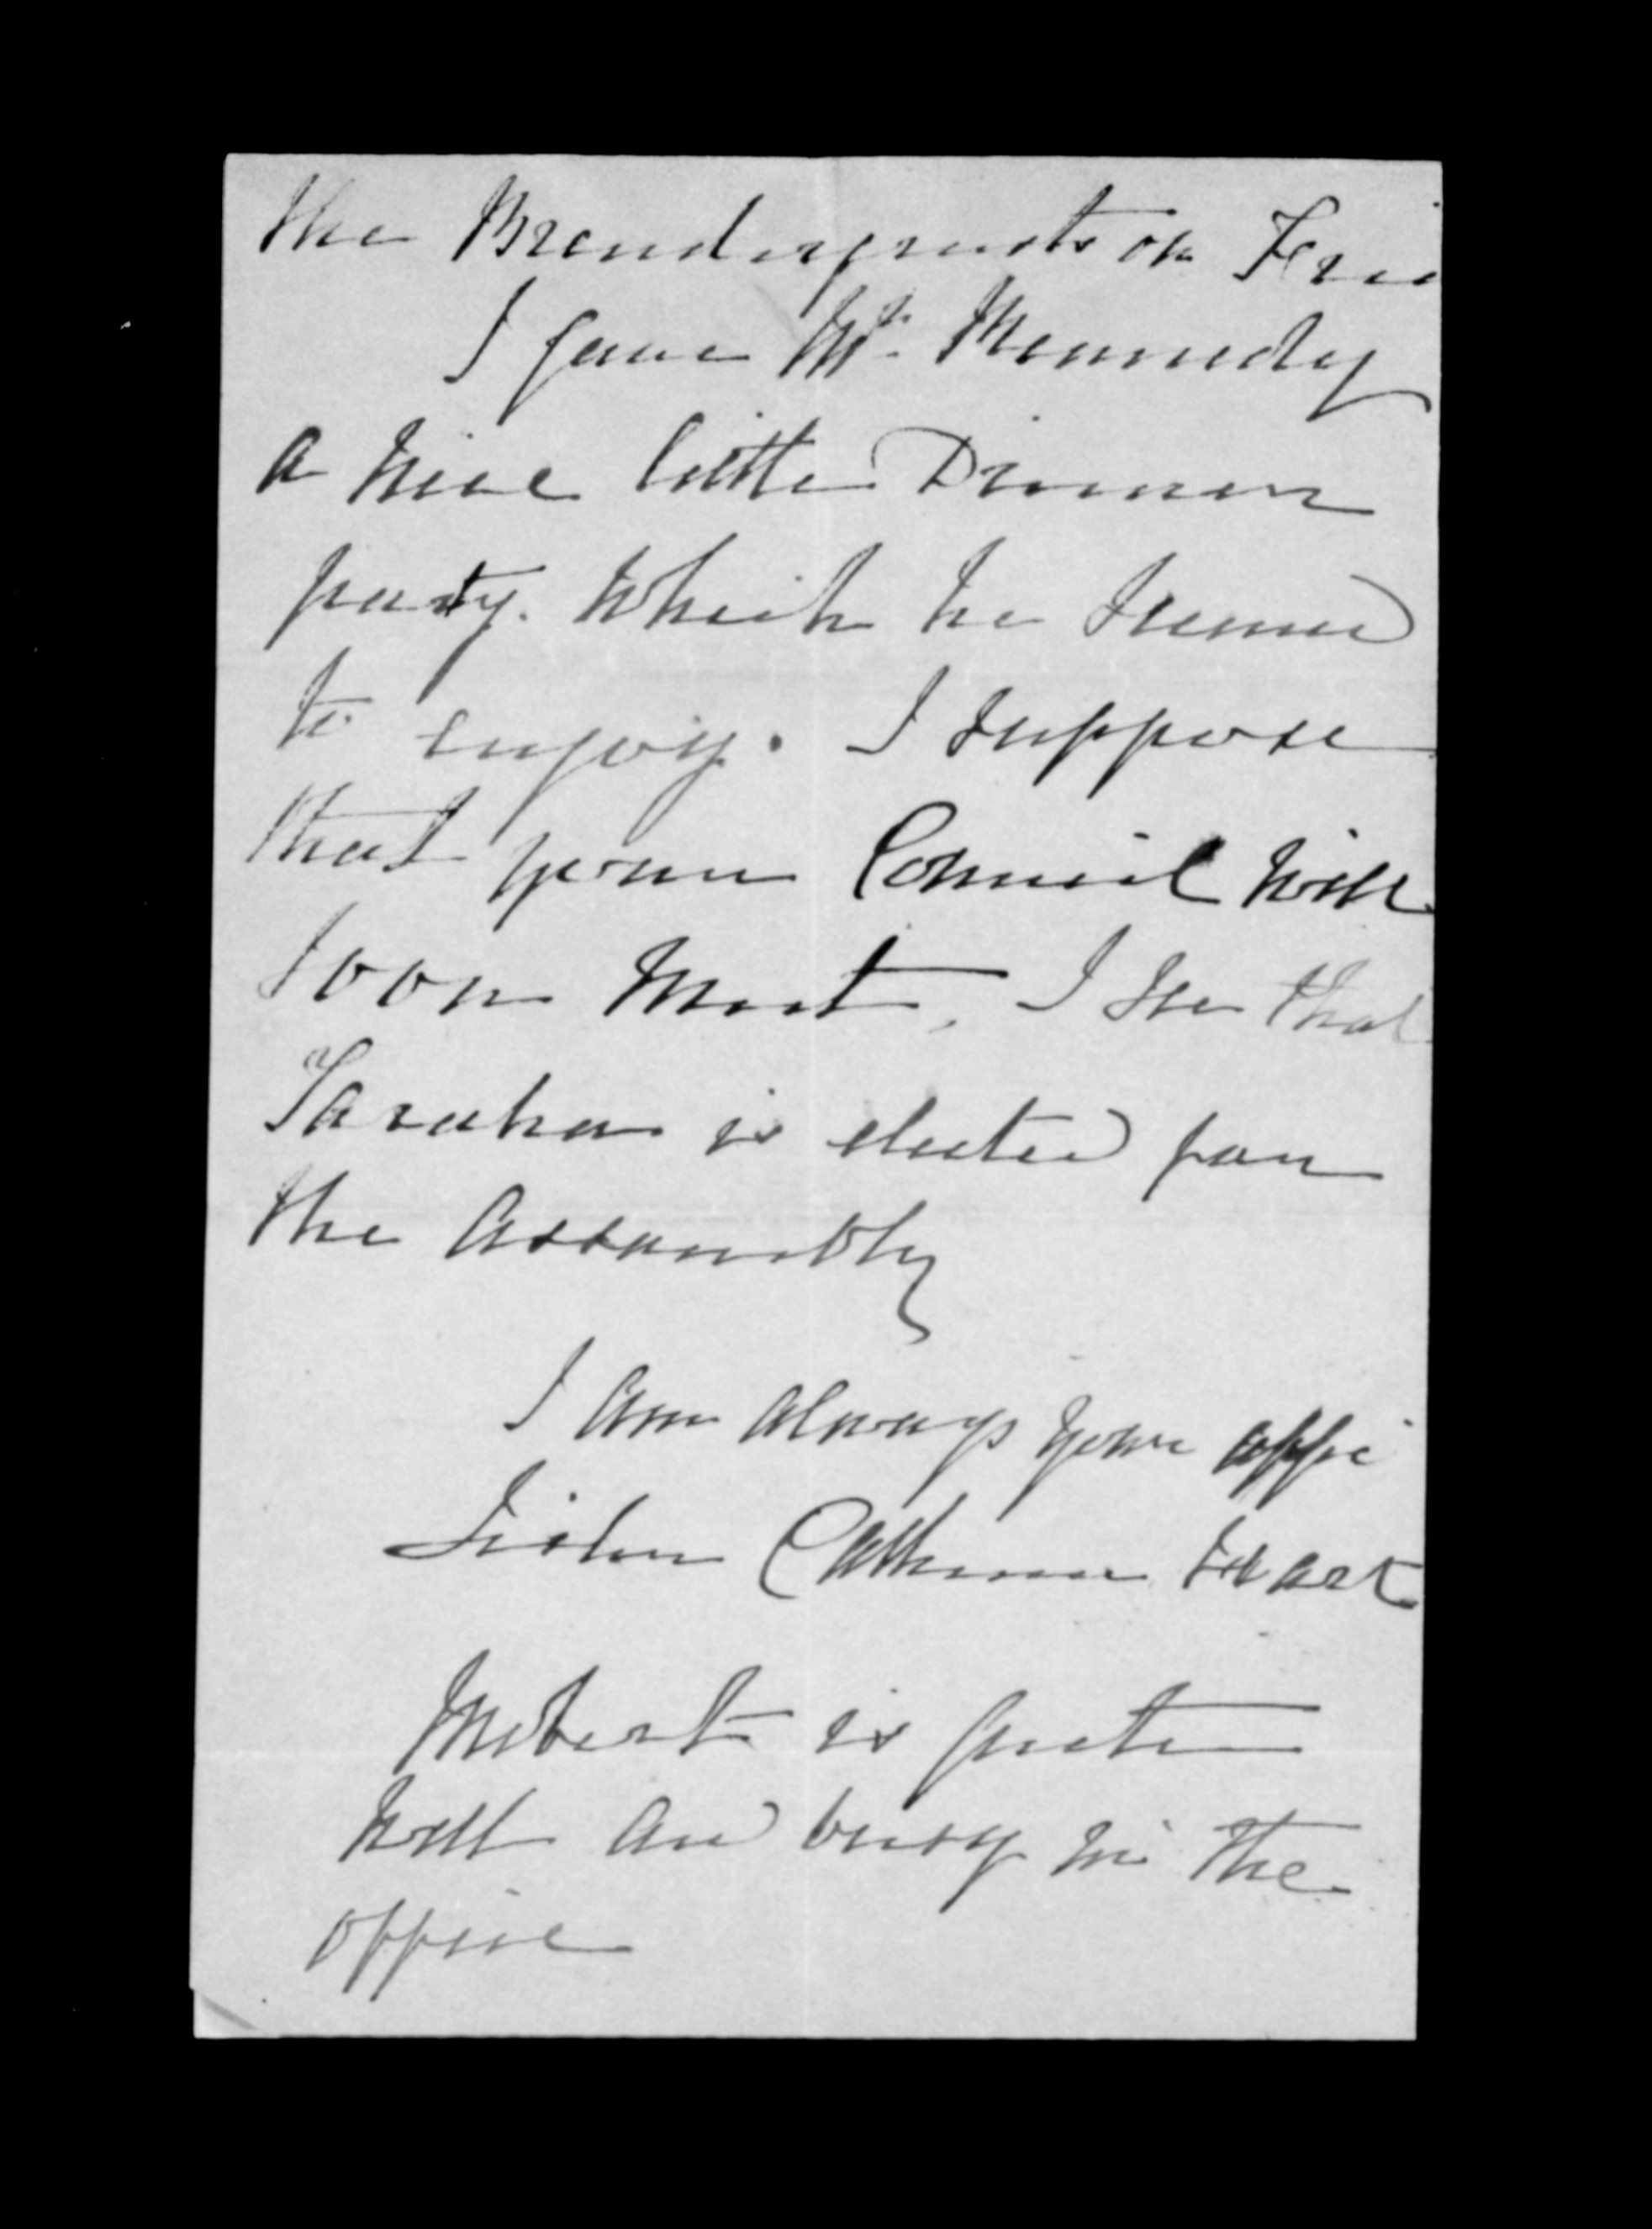 the Prendergasts on Frid
I gave Mr. Kennedy
a nice little Dinner
party. which he seemed
to enjoy. I suppose
that your Council will
soon meet, I see that
Taraha is elected for
the Assembly
I am always your affe
Sister Catherine Hart
Robert is quite
well and busy in the
office